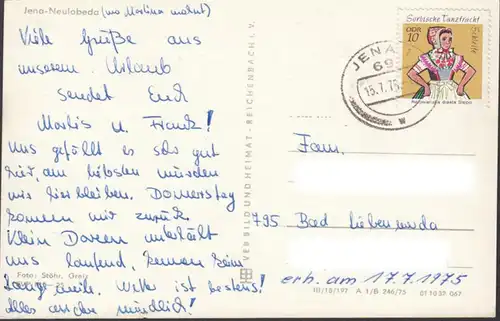 Jena-Neulobeda (wo Martina wohnt)
Viele Grüße aus
unserem Urlaub
sendet Euch
u. Frank!
Uns gefällt es sehr gut
hier, am liebsten würden
wir hierbleiben. Donnerstag
kommen wir zurück.
Klein Doreen unterhält
uns laufend, kennen kein
Langeweile. Wetter ist bestens!
Alles andere mündlich!
Foto: Stöhr, Greiz
VEB BILD UND HEIMAT · REICHENBACH i. V.
Sorbische Tanztracht
DDR 10
JENA
69
15.7.75
Fam.
795 Bad Liebenwerda
erh. am 17.7.1975
III/18/197 A 1/B 246/75 01 10 32 067